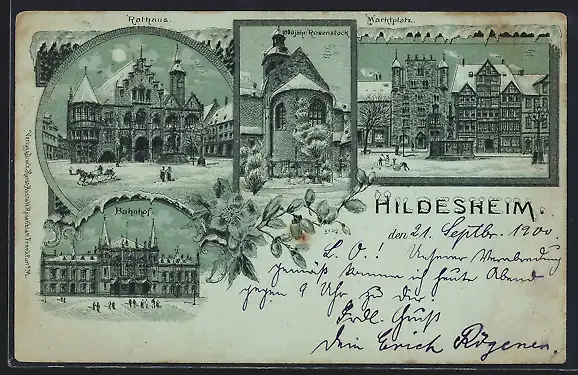 Rathaus.
1000jähr. Rosenstock
Marktplatz.
Bahnhof.
HILDESHEIM.
den 21. Septbr. 1900
L. O.! Unserer Verabredung
gemäß komme ich heute Abend
gegen 9 Uhr zu dir.
Frdl. Gruß
Dein Erich